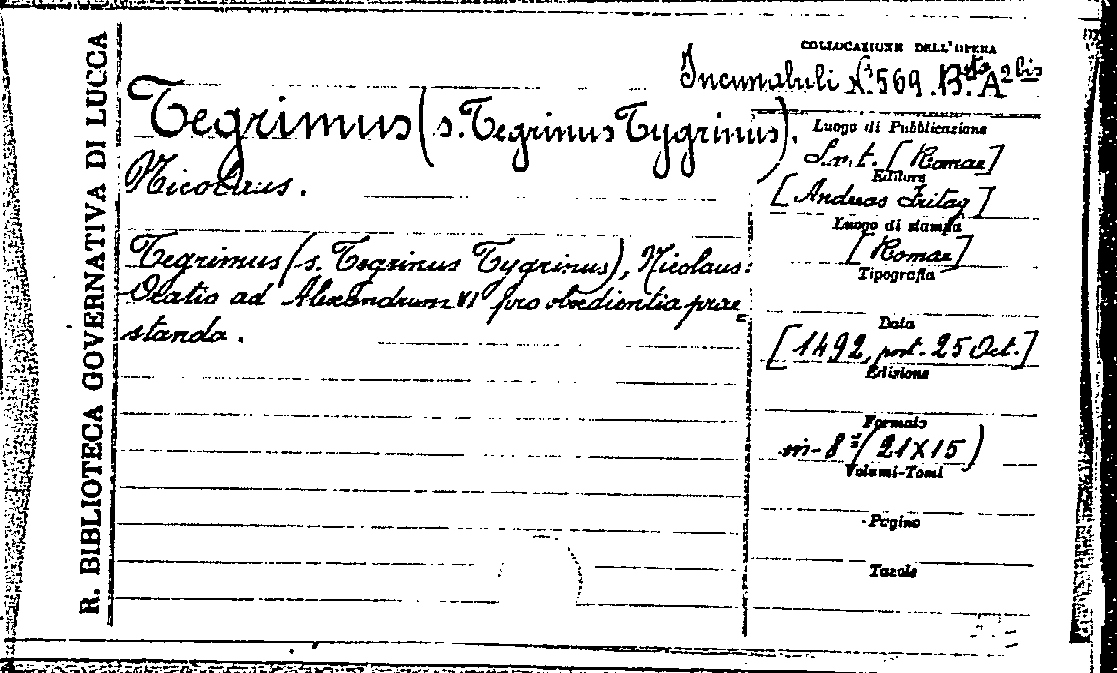 R. BIBLIOTECA GOVERNATIVA DI LUCCA
COLLOCAZIONE DELL'OPERA
Incunabuli N.º 569. B.ta A 2 bis
Tegrimus (s. Tegrinus Tygrinus).
Nicolaus.
Tegrimus (s. Tegrinus Tygrinus), Nicolaus:
Oratio ad Alexandrum VI pro obedientia prae=
standa.
Luogo di Pubblicazione
S.n.t. [Romae]
Editore
[Andreas Fritag]
Luogo di stampa
[Romae]
Tipografia
Data
[1492, post. 25 Oct.]
Edizione
Formato
in-8º (21X15)
Volumi-Tomi
Pagine
Tavole